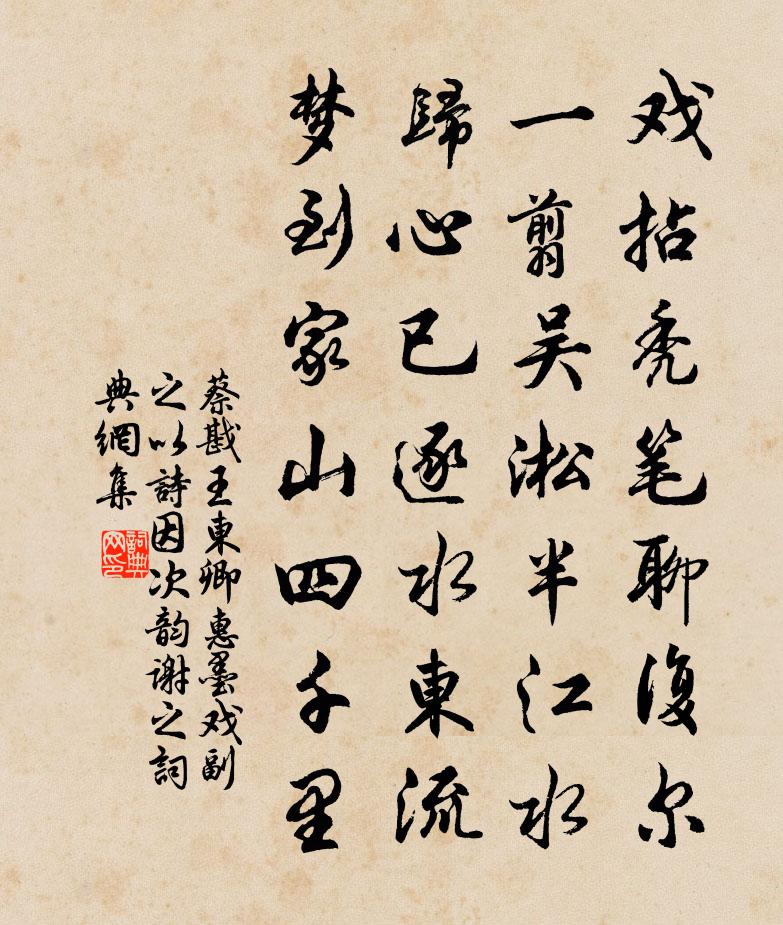 戏拈秃笔聊復尔
一剪吴淞半江水
歸心已逐水東流
梦到家山四千里
蔡戡王東卿惠墨戏副
之以詩因次韵谢之詞
典網集
詞典网印